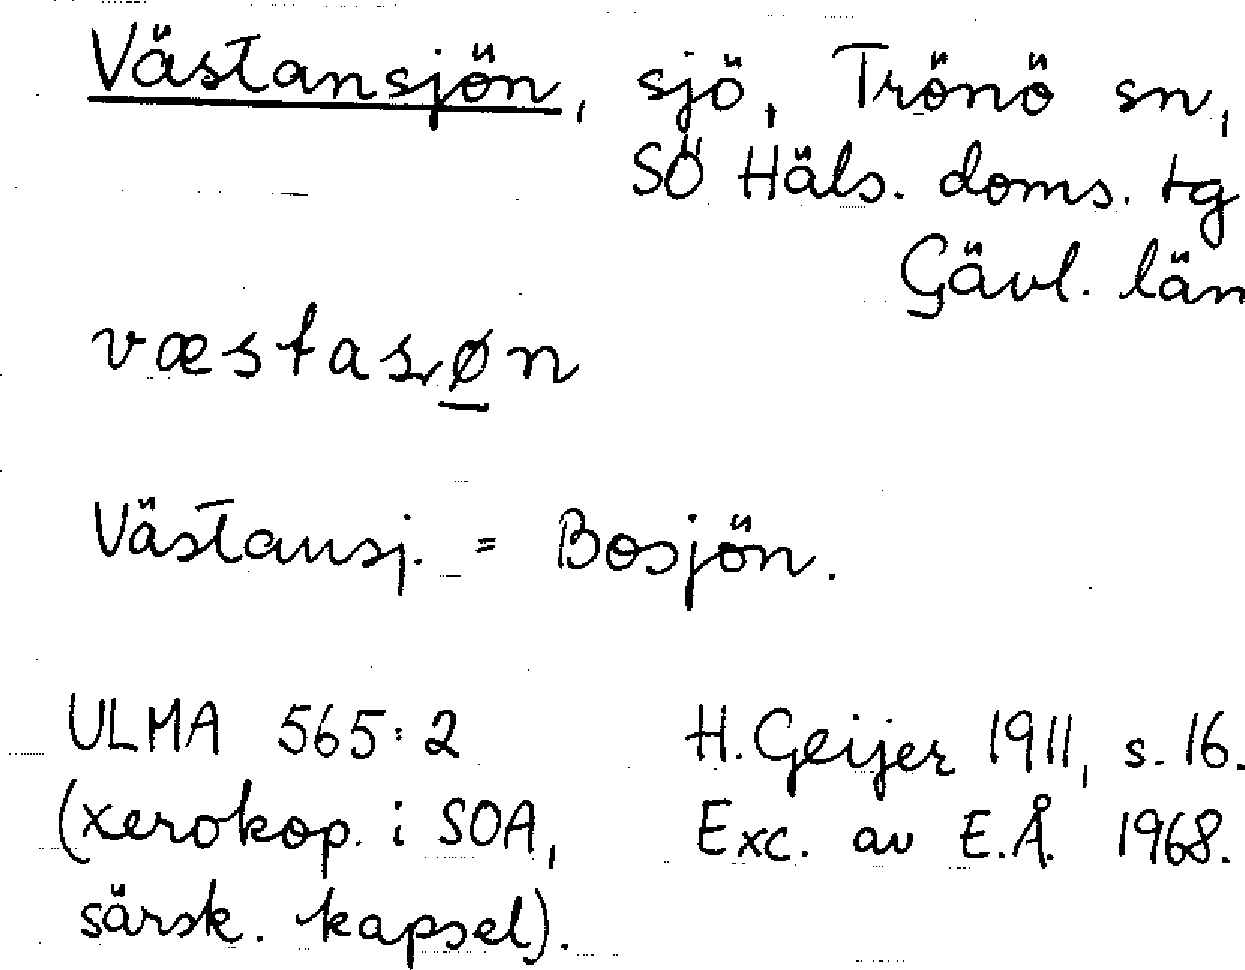 Västansjön, sjö, Trönö sn,
SÖ Häls. doms. tg
Gävl. län
væstasøn
Västansj. = Bosjön.
ULMA 565:2 H. Geijer 1911, s. 16.
(xerokop. i SOA, Exc. av E.Å. 1968.
särsk. kapsel).